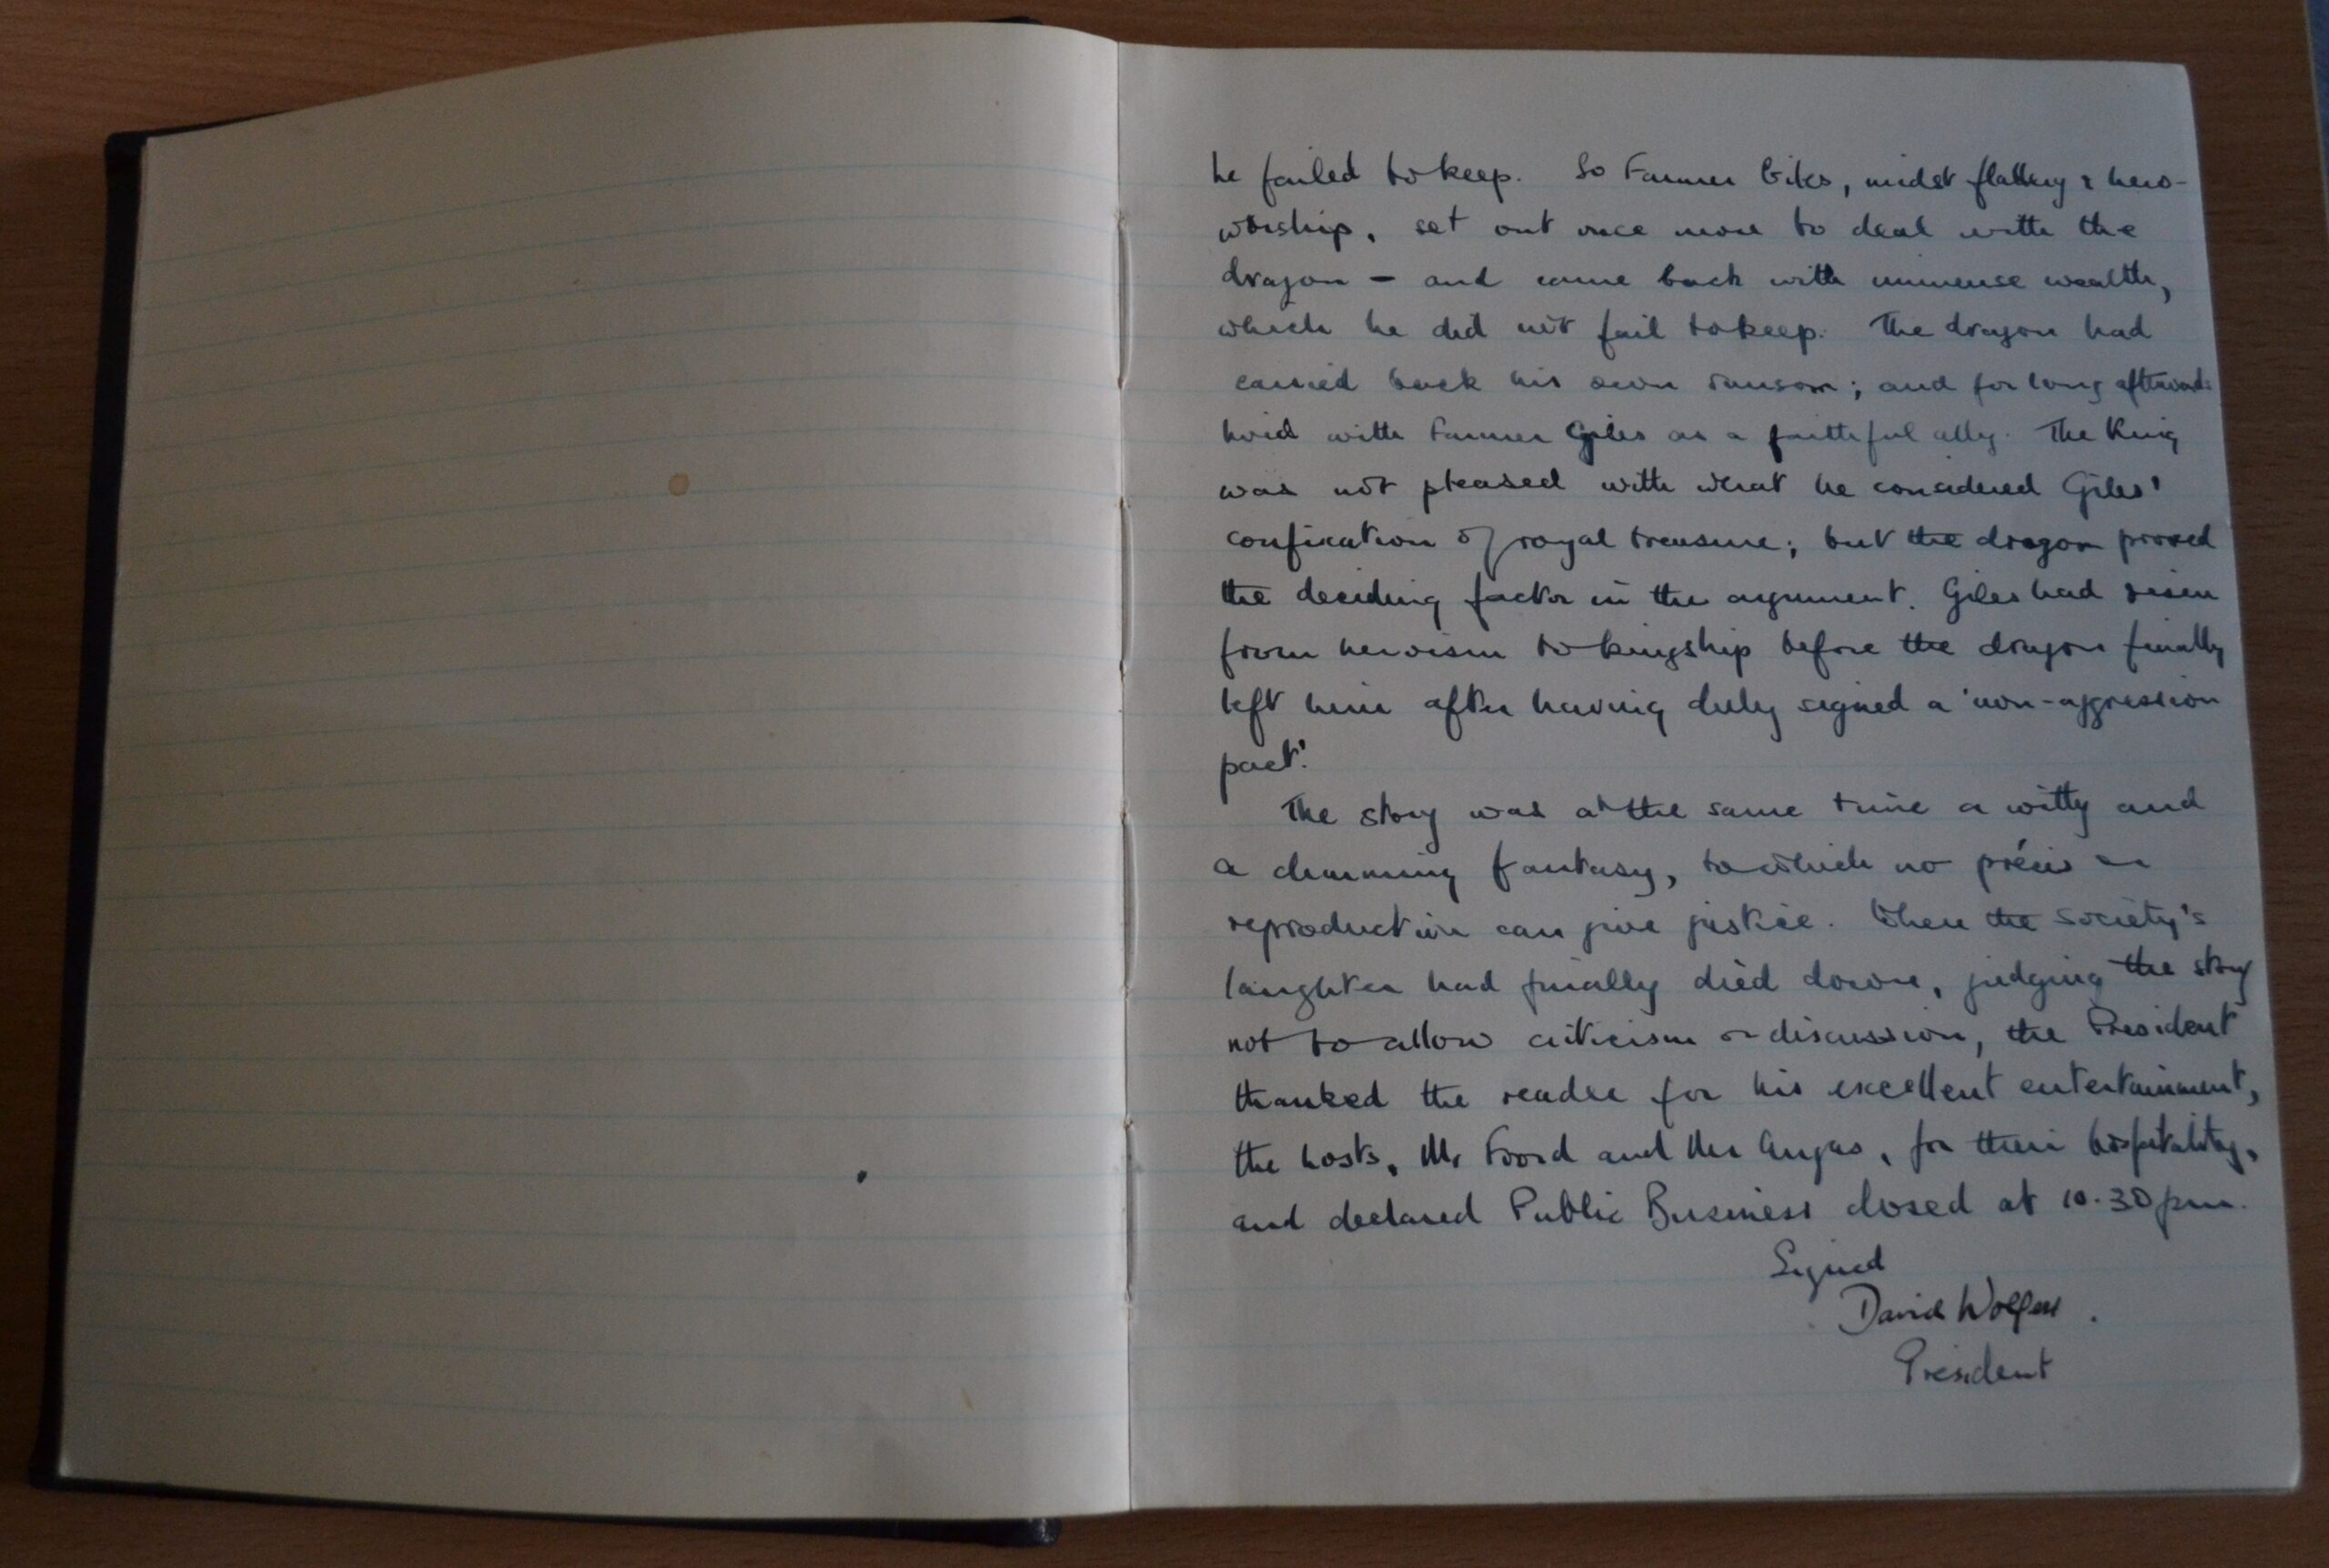 he failed to keep. So Farmer Giles, midst flattery & hero-
worship, set out once more to deal with the
dragon – and came back with immense wealth,
which he did not fail to keep. The dragon had
carried back his own ransom; and for long afterwards
lived with Farmer Giles as a faithful ally. The King
was not pleased with what he considered Giles'
confixation of royal treasure; but the dragon proved
the deciding factor in the argument. Giles had risen
from heroism to kingship before the dragon finally
left him after having duly signed a 'non-aggression
pact'.
The story was at the same time a witty and
a charming fantasy, to which no précis or
reproduction can give justice. When the Society's
laughter had finally died down, judging the story
not to allow criticism or discussion, the President
thanked the reader for his excellent entertainment,
the hosts, Mr Foord and Mr Angus, for their hospitality,
and declared Public Business closed at 10.30 pm.
Signed
David
President